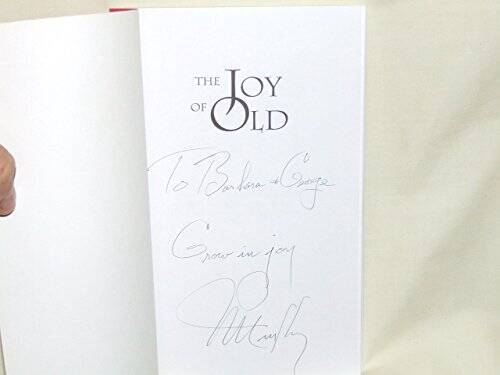 THE JOY
OF OLD
To Barbara + George
Grow in joy
J Murphy